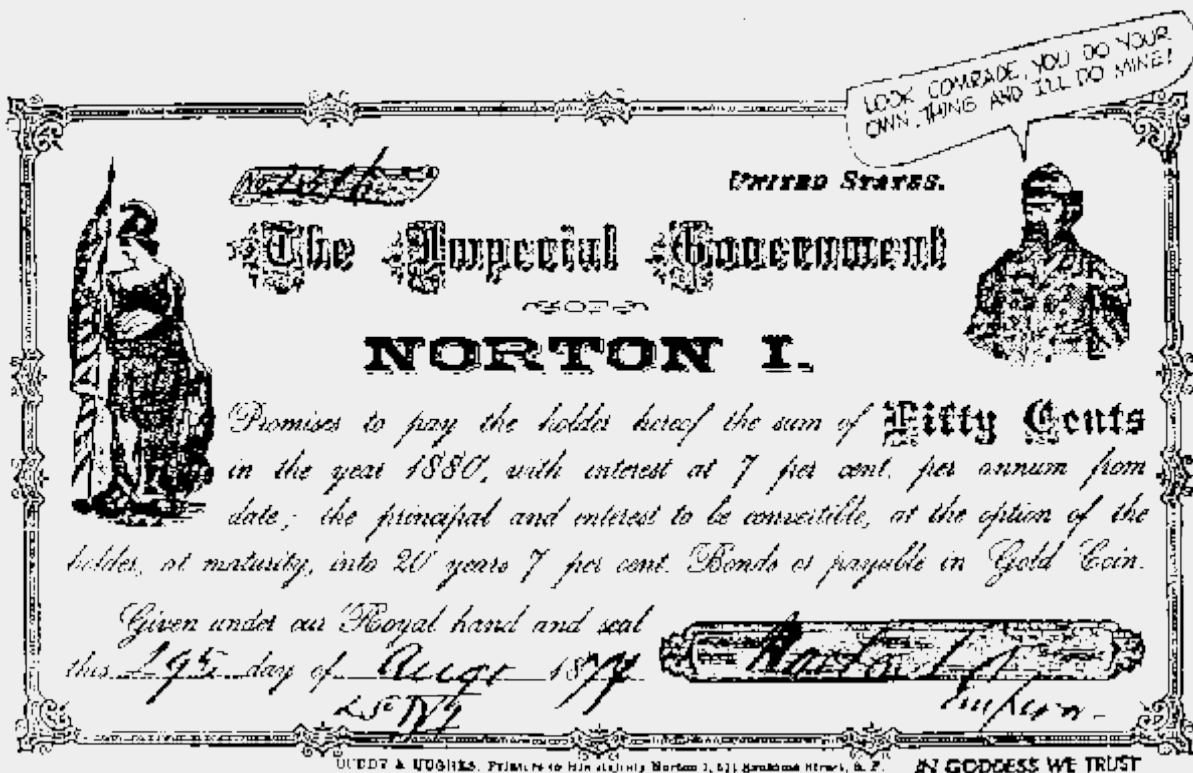 LOOK COMRADE, YOU DO YOUR
OWN THING AND I'LL DO MINE!
No.
UNITED STATES.
The Imperial Government
OF
NORTON I.
Promises to pay the holder hereof the sum of Fifty Cents
in the year 1880, with interest at 7 per cent. per annum from
date; the principal and interest to be convertible, at the option of the
holder, at maturity, into 20 years 7 per cent. Bonds or payable in Gold Coin.
Given under our Royal hand and seal
this 29th day of Augt 187
Norton I
Emperor
CUDDY & HUGHES, Printers to His Majesty Norton I, 511 Sansome Street, S. F.
IN GODDESS WE TRUST